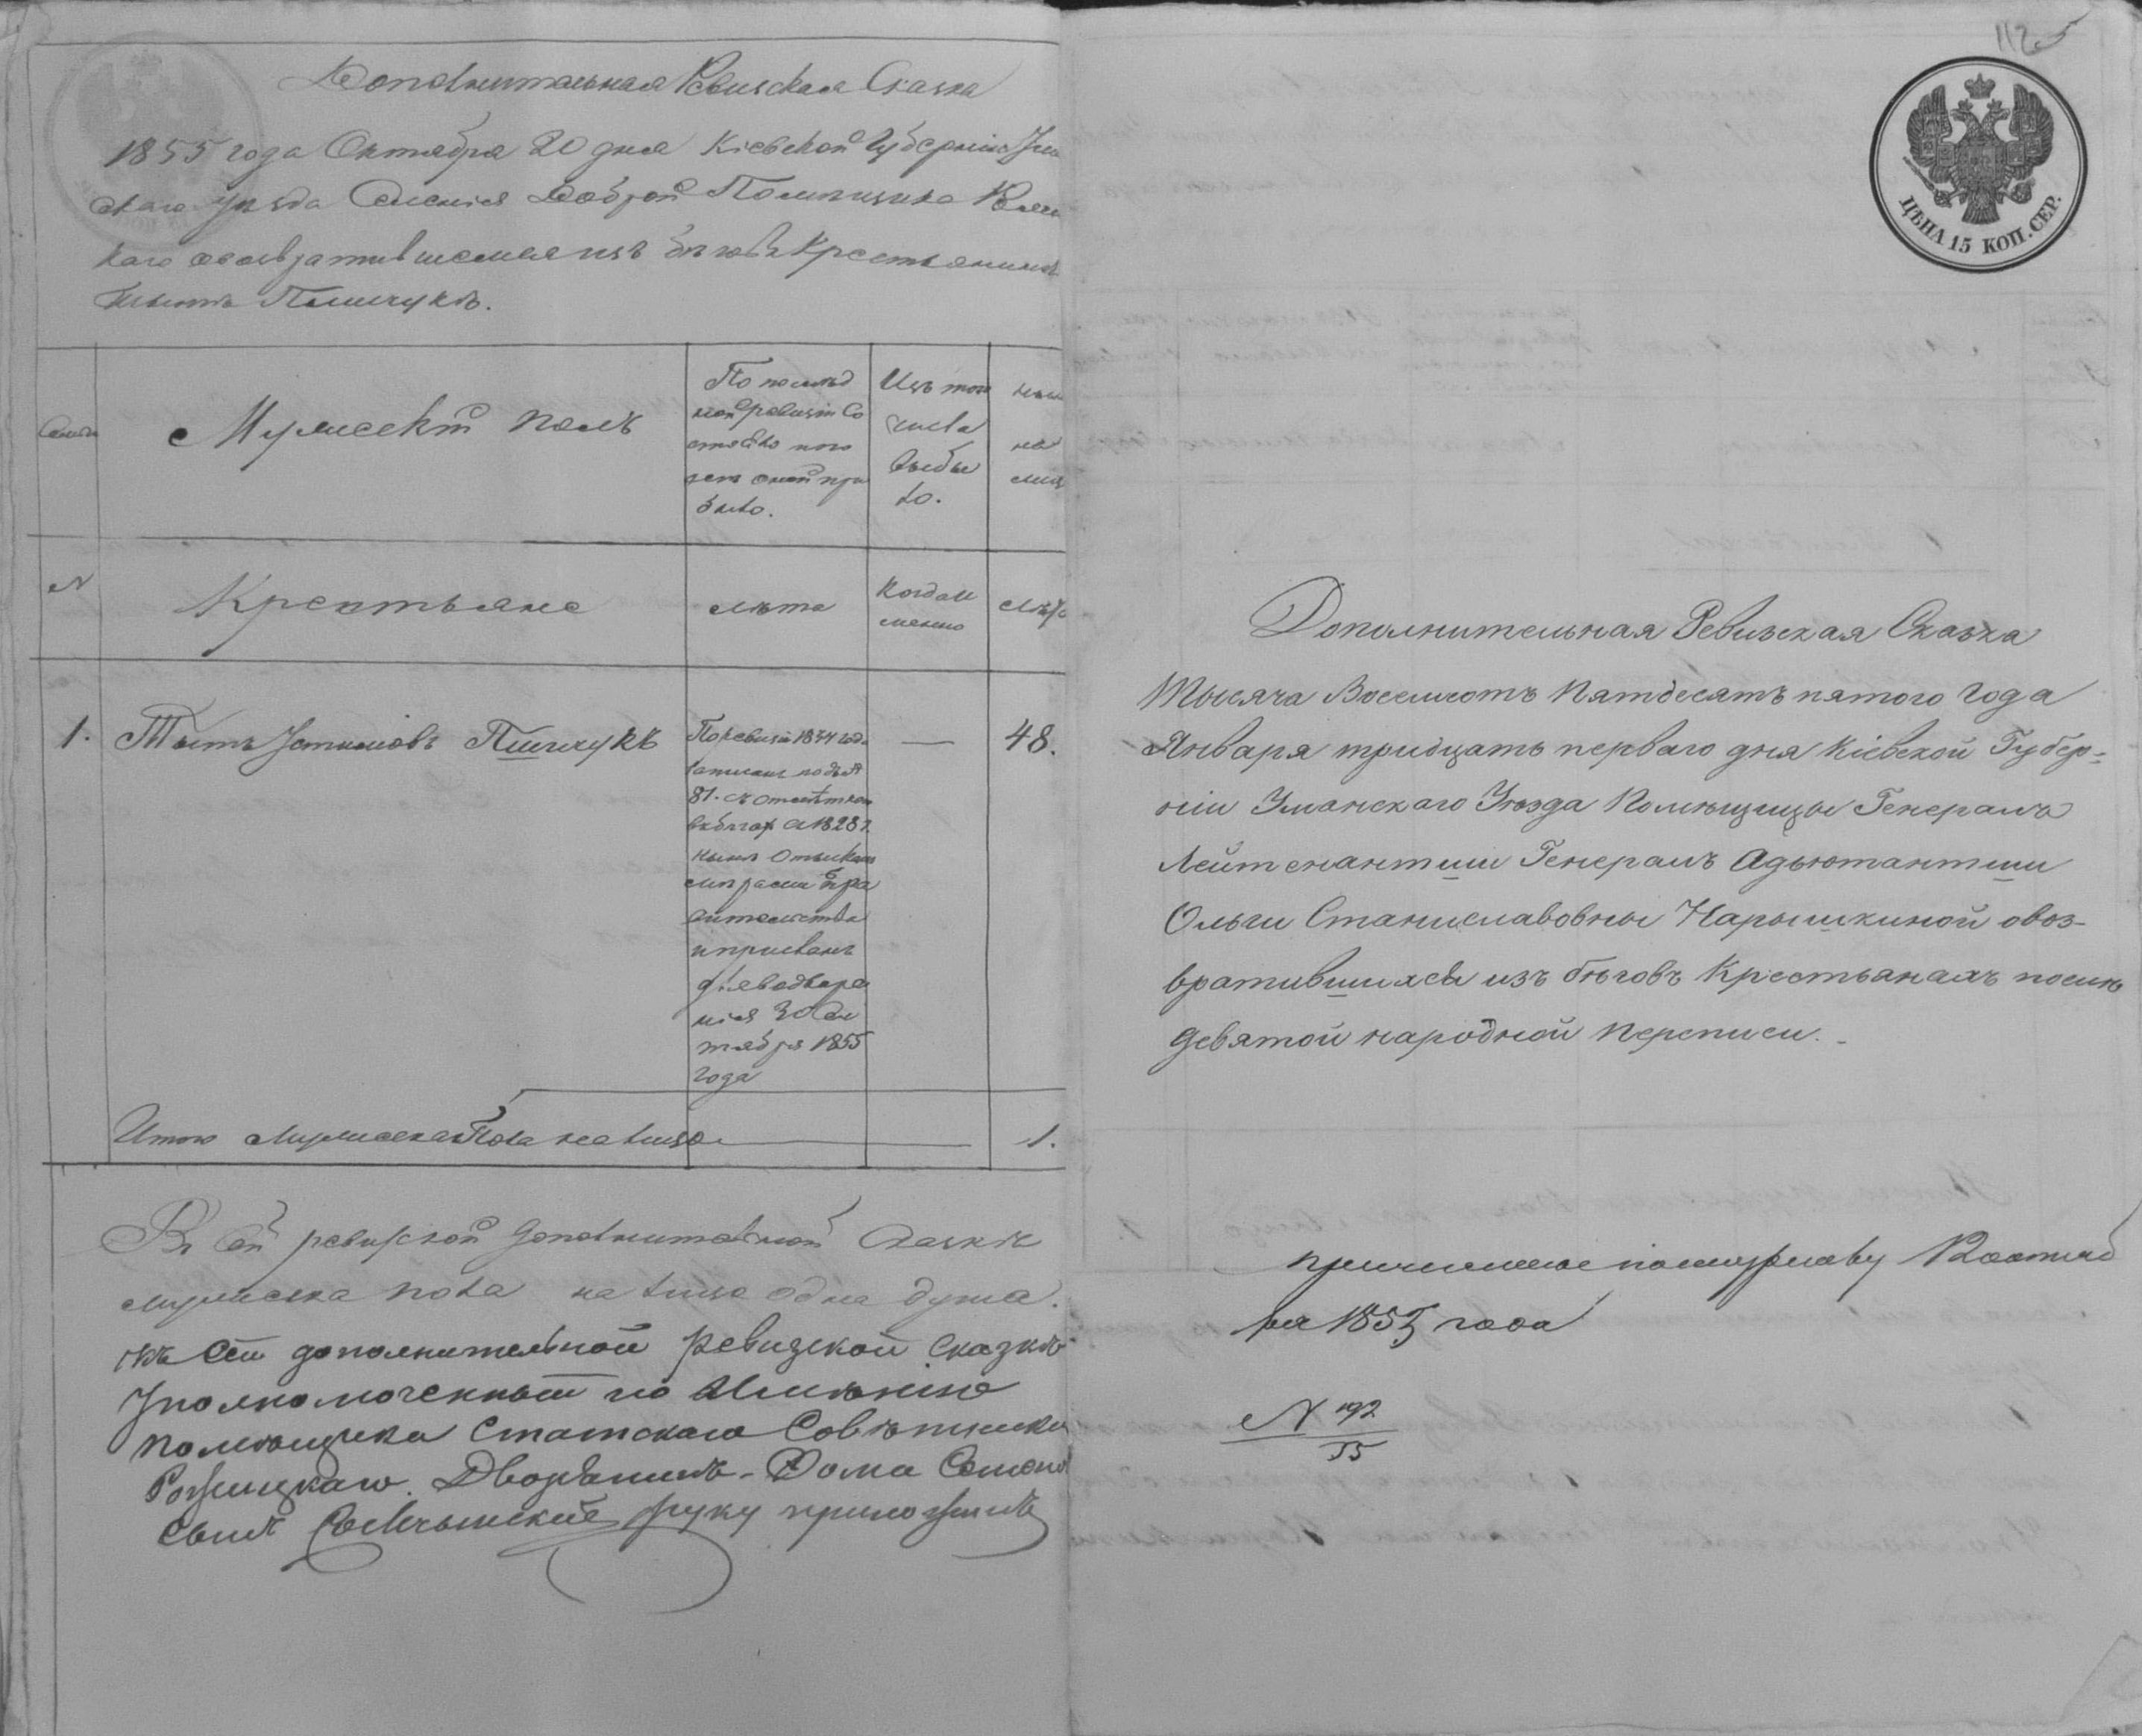 Дополнительная Ревизская Сказка
1855 года Октября 20 дня Кіевской Губерніи Ума
скаго уѣзда Селенія Доброй Помѣщика
каго о возвратившемся изъ бѣговъ Крестьянинѣ
Пилипчукѣ.
Семьи
Мужескій полъ
По послѣд
ней ревизіи со
стояло и по
слѣ оной при
было.
Изъ того
числа
выбы
ло.
нынѣ
на
лиц
N
Крестьяне
лѣта
Когда и
менно
лѣта
1.
Устимовъ
По ревизіи 1834 года
записанъ подъ N
81. съ отмѣткою
въ бѣгах съ 1828 г.
нынѣ отысканъ
мѣрами пра
вительства
и присланъ
для водворе
нія 30 Сен
тября 1855
года
—
48.
Итого Мужеска Пола на лицо
1.
Въ сей ревизской дополнительной Сказкѣ
мужеска пола на лицо одна душа.
Къ сей дополнительной ревизской сказкѣ
Уполномоченный по Имѣнію
помѣщика Статскаго Совѣтника
Рожицкаго. Дворянинъ
сынъ руку приложилъ
112
ЦѢНА 15 КОП. СЕР.
Дополнительная Ревизская Сказка
Тысяча Восемсотъ Пятдесятъ пятого года
Января тридцать перваго дня Кіевской Губер=
ніи Уманскаго Уѣзда Помѣщицы Генералъ
Лейтенантши Генералъ Адъютантши
Ольги Станиславовны Нарышкиной о воз-
вратившихся изъ бѣговъ Крестьянахъ послѣ
девятой народной переписи.
ря 1855 года
N 192
55